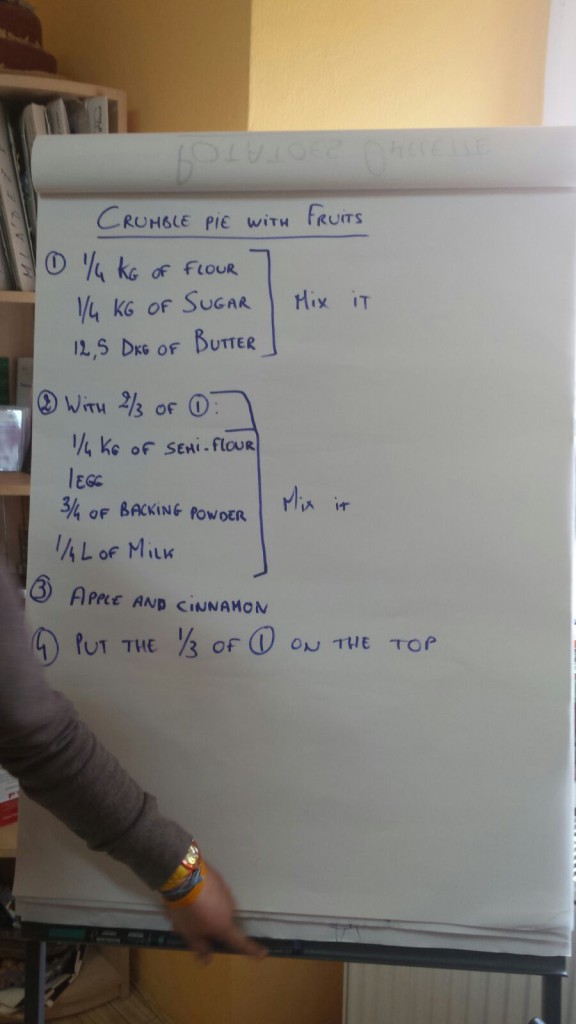 POTATOES
CRUMBLE PIE WITH FRUITS
① 1/4 KG OF FLOUR
1/4 KG OF SUGAR
12,5 DKG OF BUTTER
MIX IT
② WITH 2/3 OF ①:
1/4 KG OF SEMI-FLOUR
1 EGG
3/4 OF BACKING POWDER
1/4 L OF MILK
MIX IT
③ APPLE AND CINNAMON
④ PUT THE 1/3 OF ① ON THE TOP